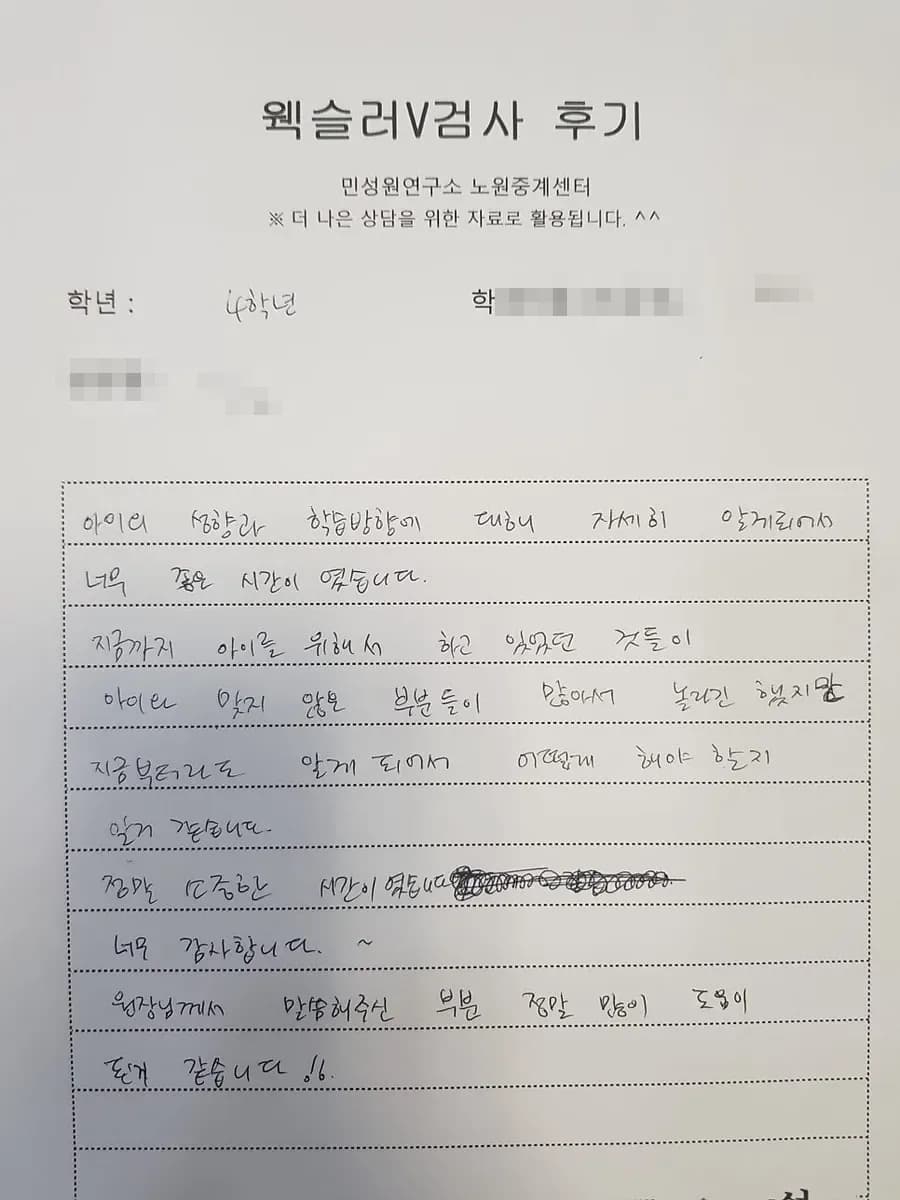 웩슬러V검사 후기
민성원연구소 노원중계센터
※ 더 나은 상담을 위한 자료로 활용됩니다. ^^
학년 : 4학년 학
아이의 성향과 학습방향에 대해 자세히 알게되어서
너무 좋은 시간이 였습니다.
지금까지 아이를 위해서 하고 있었던 것들이
아이와 맞지 않은 부분들이 많아서 놀라긴 했지만
지금부터라도 알게 되어서 어떻게 해야 할지
알거 같습니다.
정말 소중한 시간이 였습니다
너무 감사합니다. ~
원장님께서 말씀해주신 부분 정말 많이 도움이
된거 같습니다